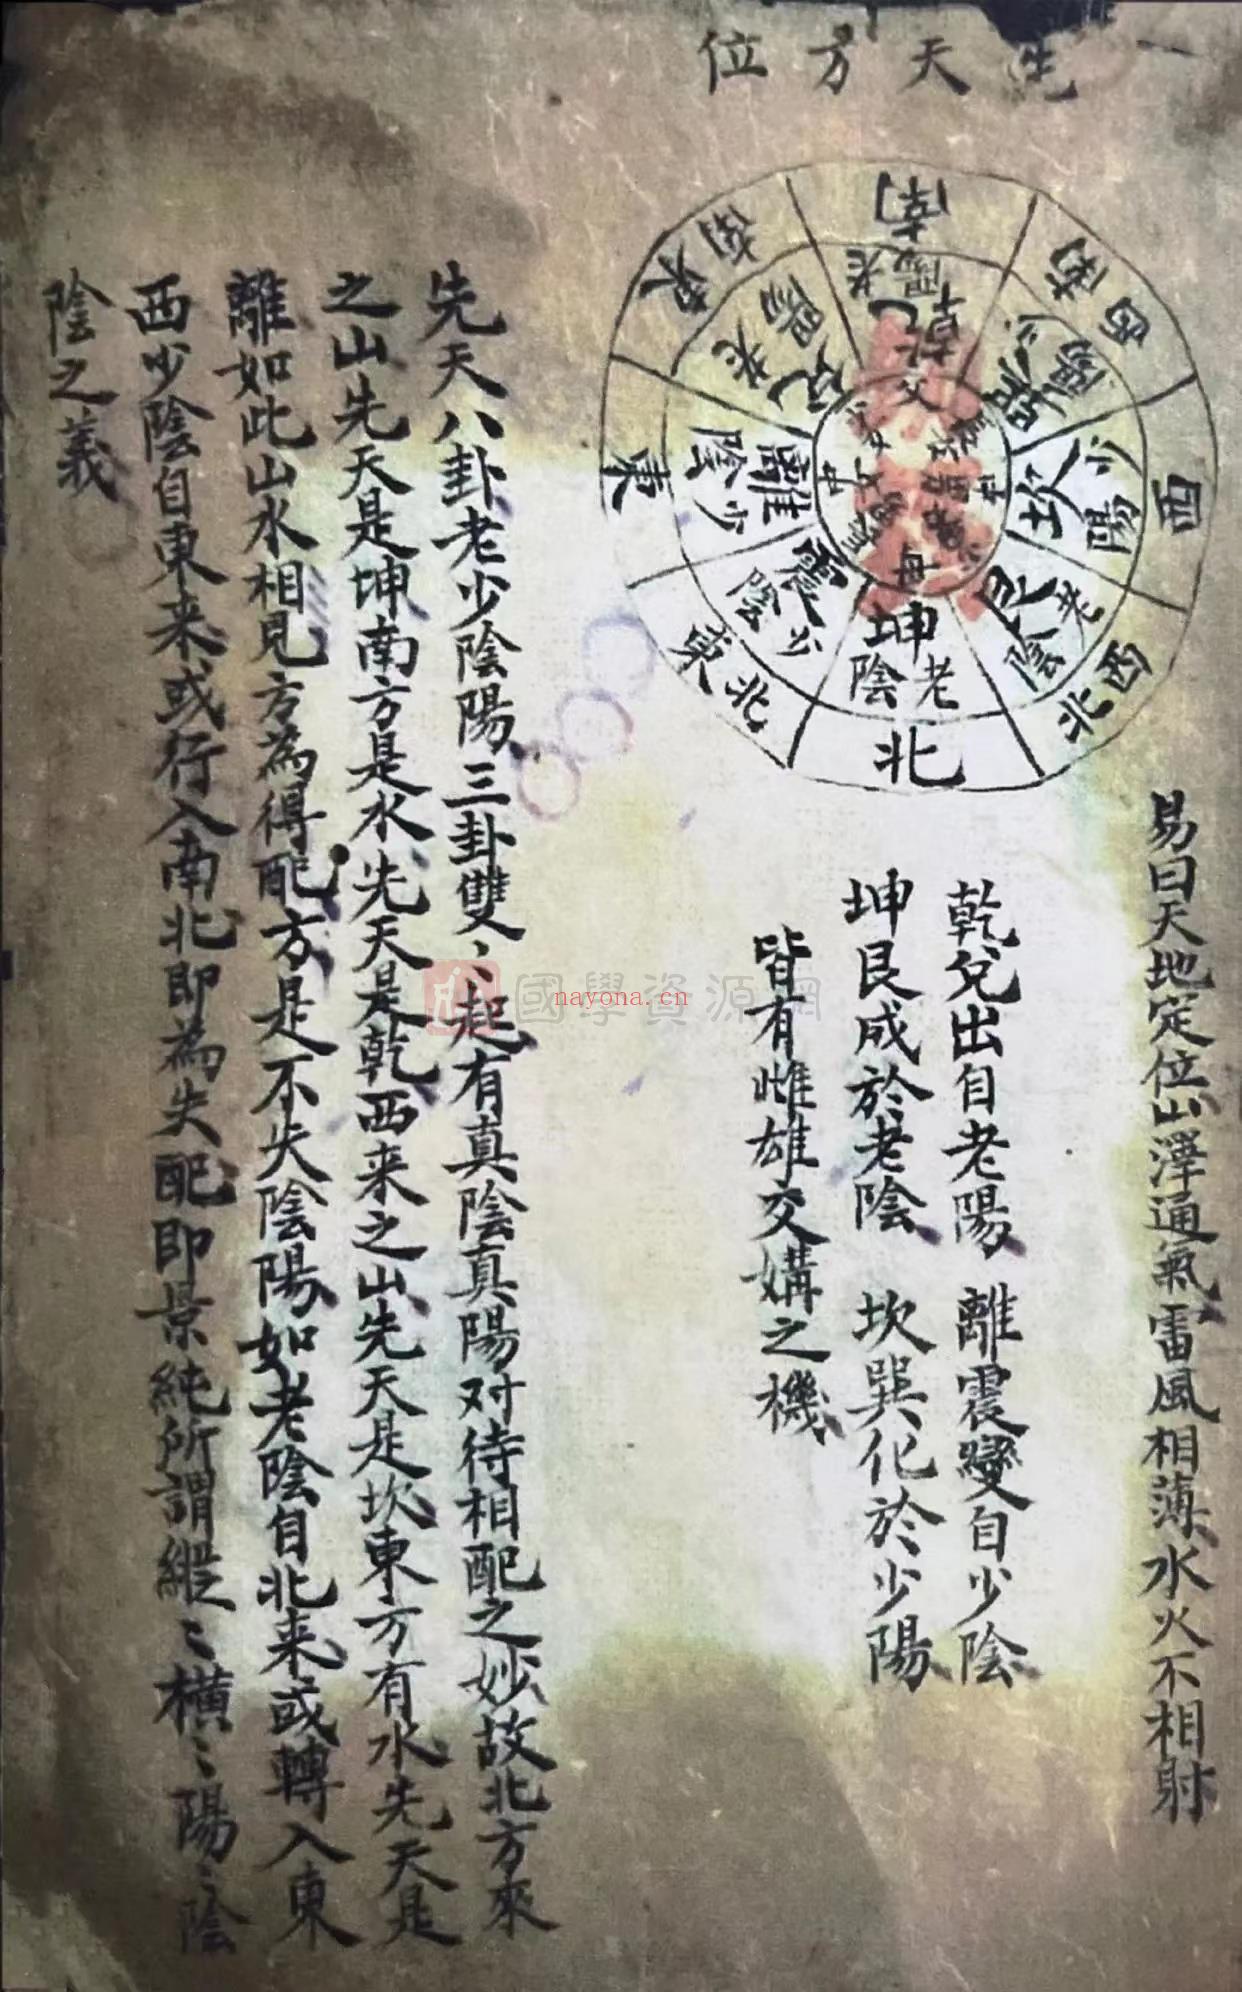 先天方位
南
老陽
乾
父
西南
少陽
巽
西
少陽
坎
西北
老陰
艮
北
老陰
坤
母
東北
少陰
震
東
少陰
離
中女
東南
老陽
兌
易曰天地定位山澤通氣雷風相薄水火不相射
乾兌出自老陽 離震變自少陰
坤艮成於老陰 坎巽化於少陽
皆有雌雄交媾之機
先天八卦老少陰陽三卦雙〻起有真陰真陽对待相配之妙故北方來
之山先天是坤南方是水先天是乾西来之山先天是坎東方有水先天是
離如此山水相見方為得配方是不失陰陽如老陰自北来或轉入東
西少陰自東来或行入南北即為失配即景純所謂縱〻橫〻陽〻陰
陰之義
國學資源網
nayona.cn